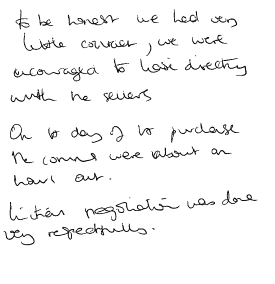 to be honest we had very
little contact, we were
encouraged to liaise directly
with the sellers
On the day of the purchase
the comms were about an
hour out.
negotiation was done
very respectfully.